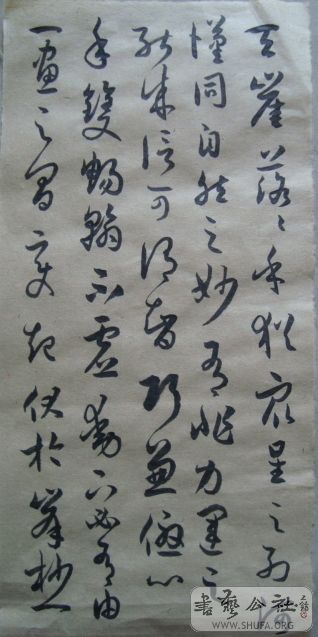 天崖落々乎猶衆星之列河
漢同自然之妙有非力運之
能成信可謂智巧兼優心
手雙暢翰不虛動下必有由
一畫之間變起伏於峯杪一
書藝公社
WWW.SHUFA.ORG